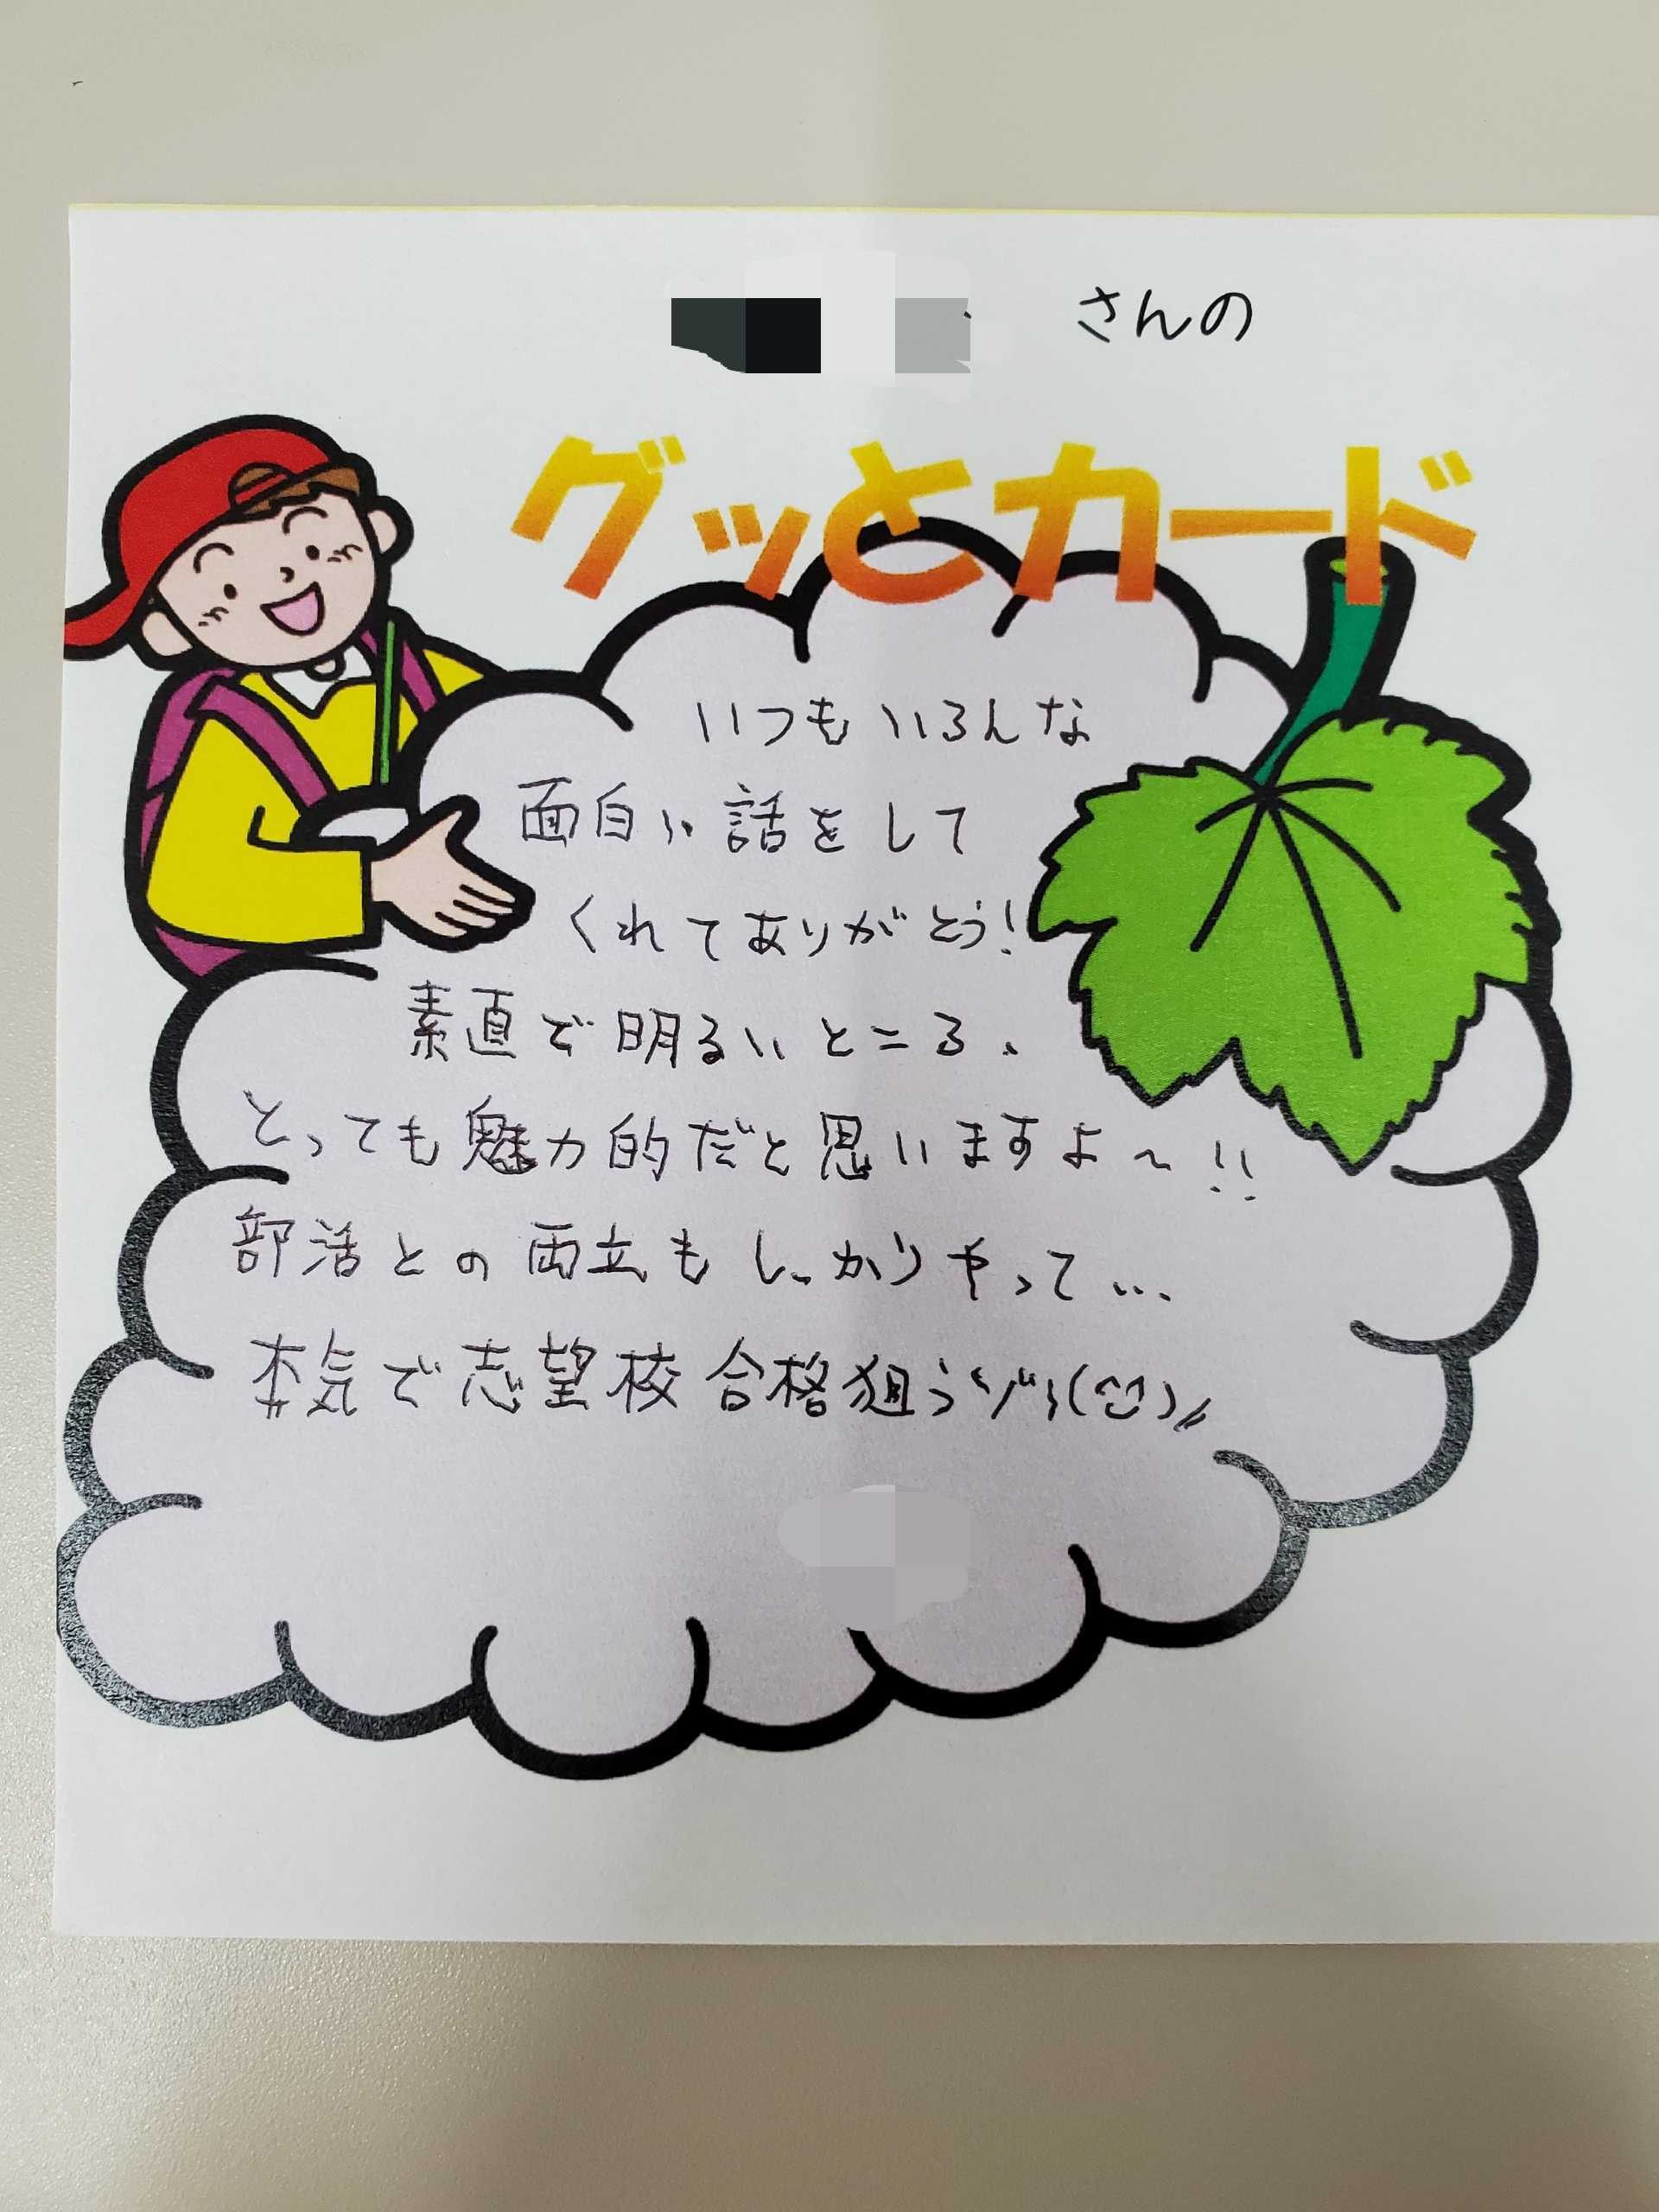 さんの
グッとカード
いつもいろんな
面白い話をして
くれてありがとう!
素直で明るいところ、
とっても魅力的だと思いますよ〜!!
部活との両立もしっかりやって…
本気で志望校合格狙うゾ